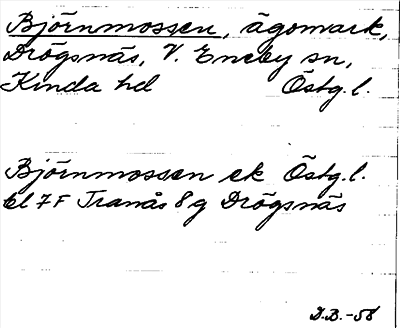 Björnmossen, ägomark,
Drögsnäs, V. Eneby sn,
Kinda hd Östg. l.
Björnmossen ek Östg. l.
bl 7F Tranås 8g Drögsnäs
D.B. -58